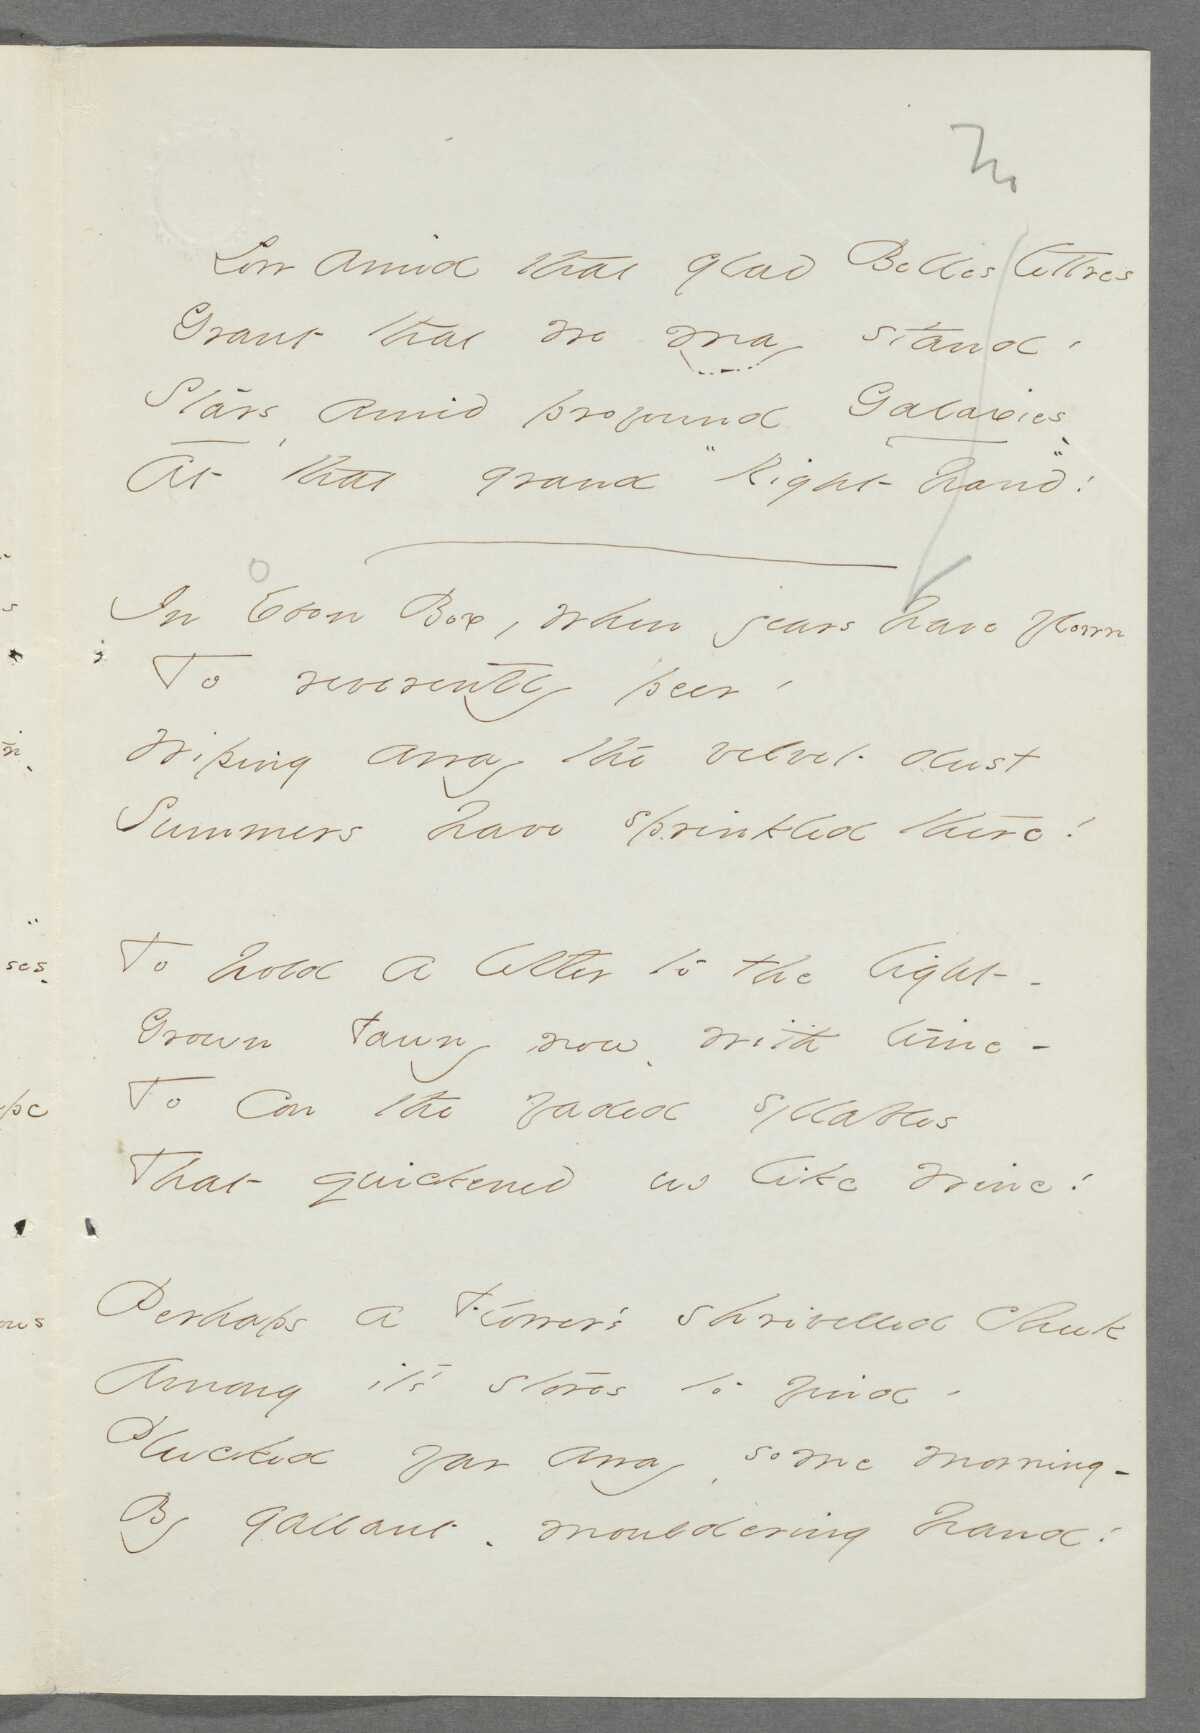 Low amid that glad Belles lettres
Grant that we may stand!
Stars, amid profound Galaxies,
At that grand "Right hand"!
In Ebon Box, when years have flown
To reverently peer!
Wiping away the velvet dust
Summers have sprinkled there!
To hold a letter to the light -
Grown Tawny now, with time -
To con the faded syllables
That quickened us like Wine!
Perhaps a Flower's shrivelled Cheek
Among its stores to find -
Plucked far away, some morning -
By gallant, mouldering hand!
ses